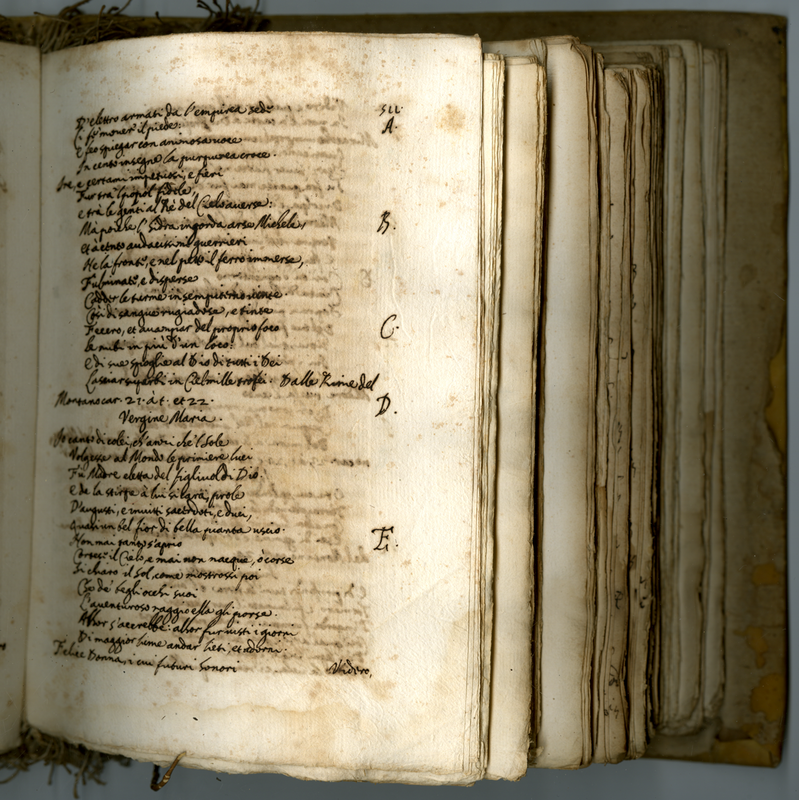 D'elettro armati da l'empirea sede 511.
E fe' mover il piede: A.
E feo spiegar con animosa voce
In cento insegne la purpurea croce.
Ire, e certami impetuosi, e fieri
Fur trà 'l popol fedele,
e trà le genti al Rè del Cielo averse:
Mà poi che l'Hidra ingorda arse Michele, B.
et à cento audacissimi guerrieri
Ne la fronte, e nel petto il ferro immerse,
Fulminate, e disperse
Cadder le turme in sempiterno
Così di sangue rugiadose, e tinte
Fecero, et avampar del proprio foco C.
le nubi in più d'un loco:
E di sue spoglie al Dio di tutti i Dei
Lasciar superbi in Ciel mille trofei. Dalle Rime del
Montano car. 21. à t. et 22. D.
Vergine Maria.
Io canto di colei, ch'anzi che 'l Sole
Volgesse al Mondo le primiere luci
Fù Madre eletta del figliuol di Dio.
E de la stirpe à lui sì grà, prole
D'augusti, e invitti sacerdoti, e duci,
Quasi un bel fior di bella pianta uscio. E.
Non mai tanto s'aprio
Cortese il Cielo, e mai non nacque, ò corse
Sì chiaro il Sol, come mostrossi poi
Che de' begli occhi suoi
L'aventuroso raggio ella gli porse.
Allor s'accrebbe: allor fur visti i giorni
Di maggior lume andar lieti, et adorni.
Felice Donna, i cui futuri honori
Videro,